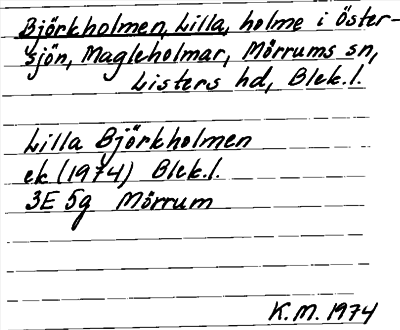 Björkholmen, Lilla, holme i Öster-
sjön, Magleholmar, Mörrums sn,
Listers hd, Blek.l.
Lilla Björkholmen
ek (1974) Blek.l.
3E 5g Mörrum
K.M. 1974